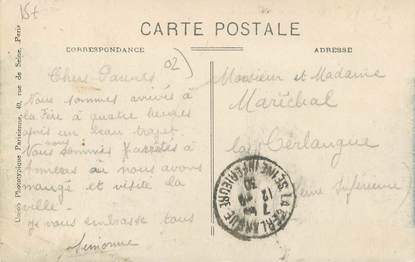 15t
CARTE POSTALE
CORRESPONDANCE
ADRESSE
02)
Nous sommes arrivés à
la Fère à quatre heures
après un beau trajet.
Nous nous sommes arrêtés à
où nous avons
mangé et visité la
ville.
je vous embrasse tous
Simonne
Monsieur et Madame
Maréchal
Cerlangue
Seine Inférieure
LA CERLANGUE
SEINE INFÉRIEURE
7
12
30
Phototypique Parisienne, 40, rue de Seine, Paris